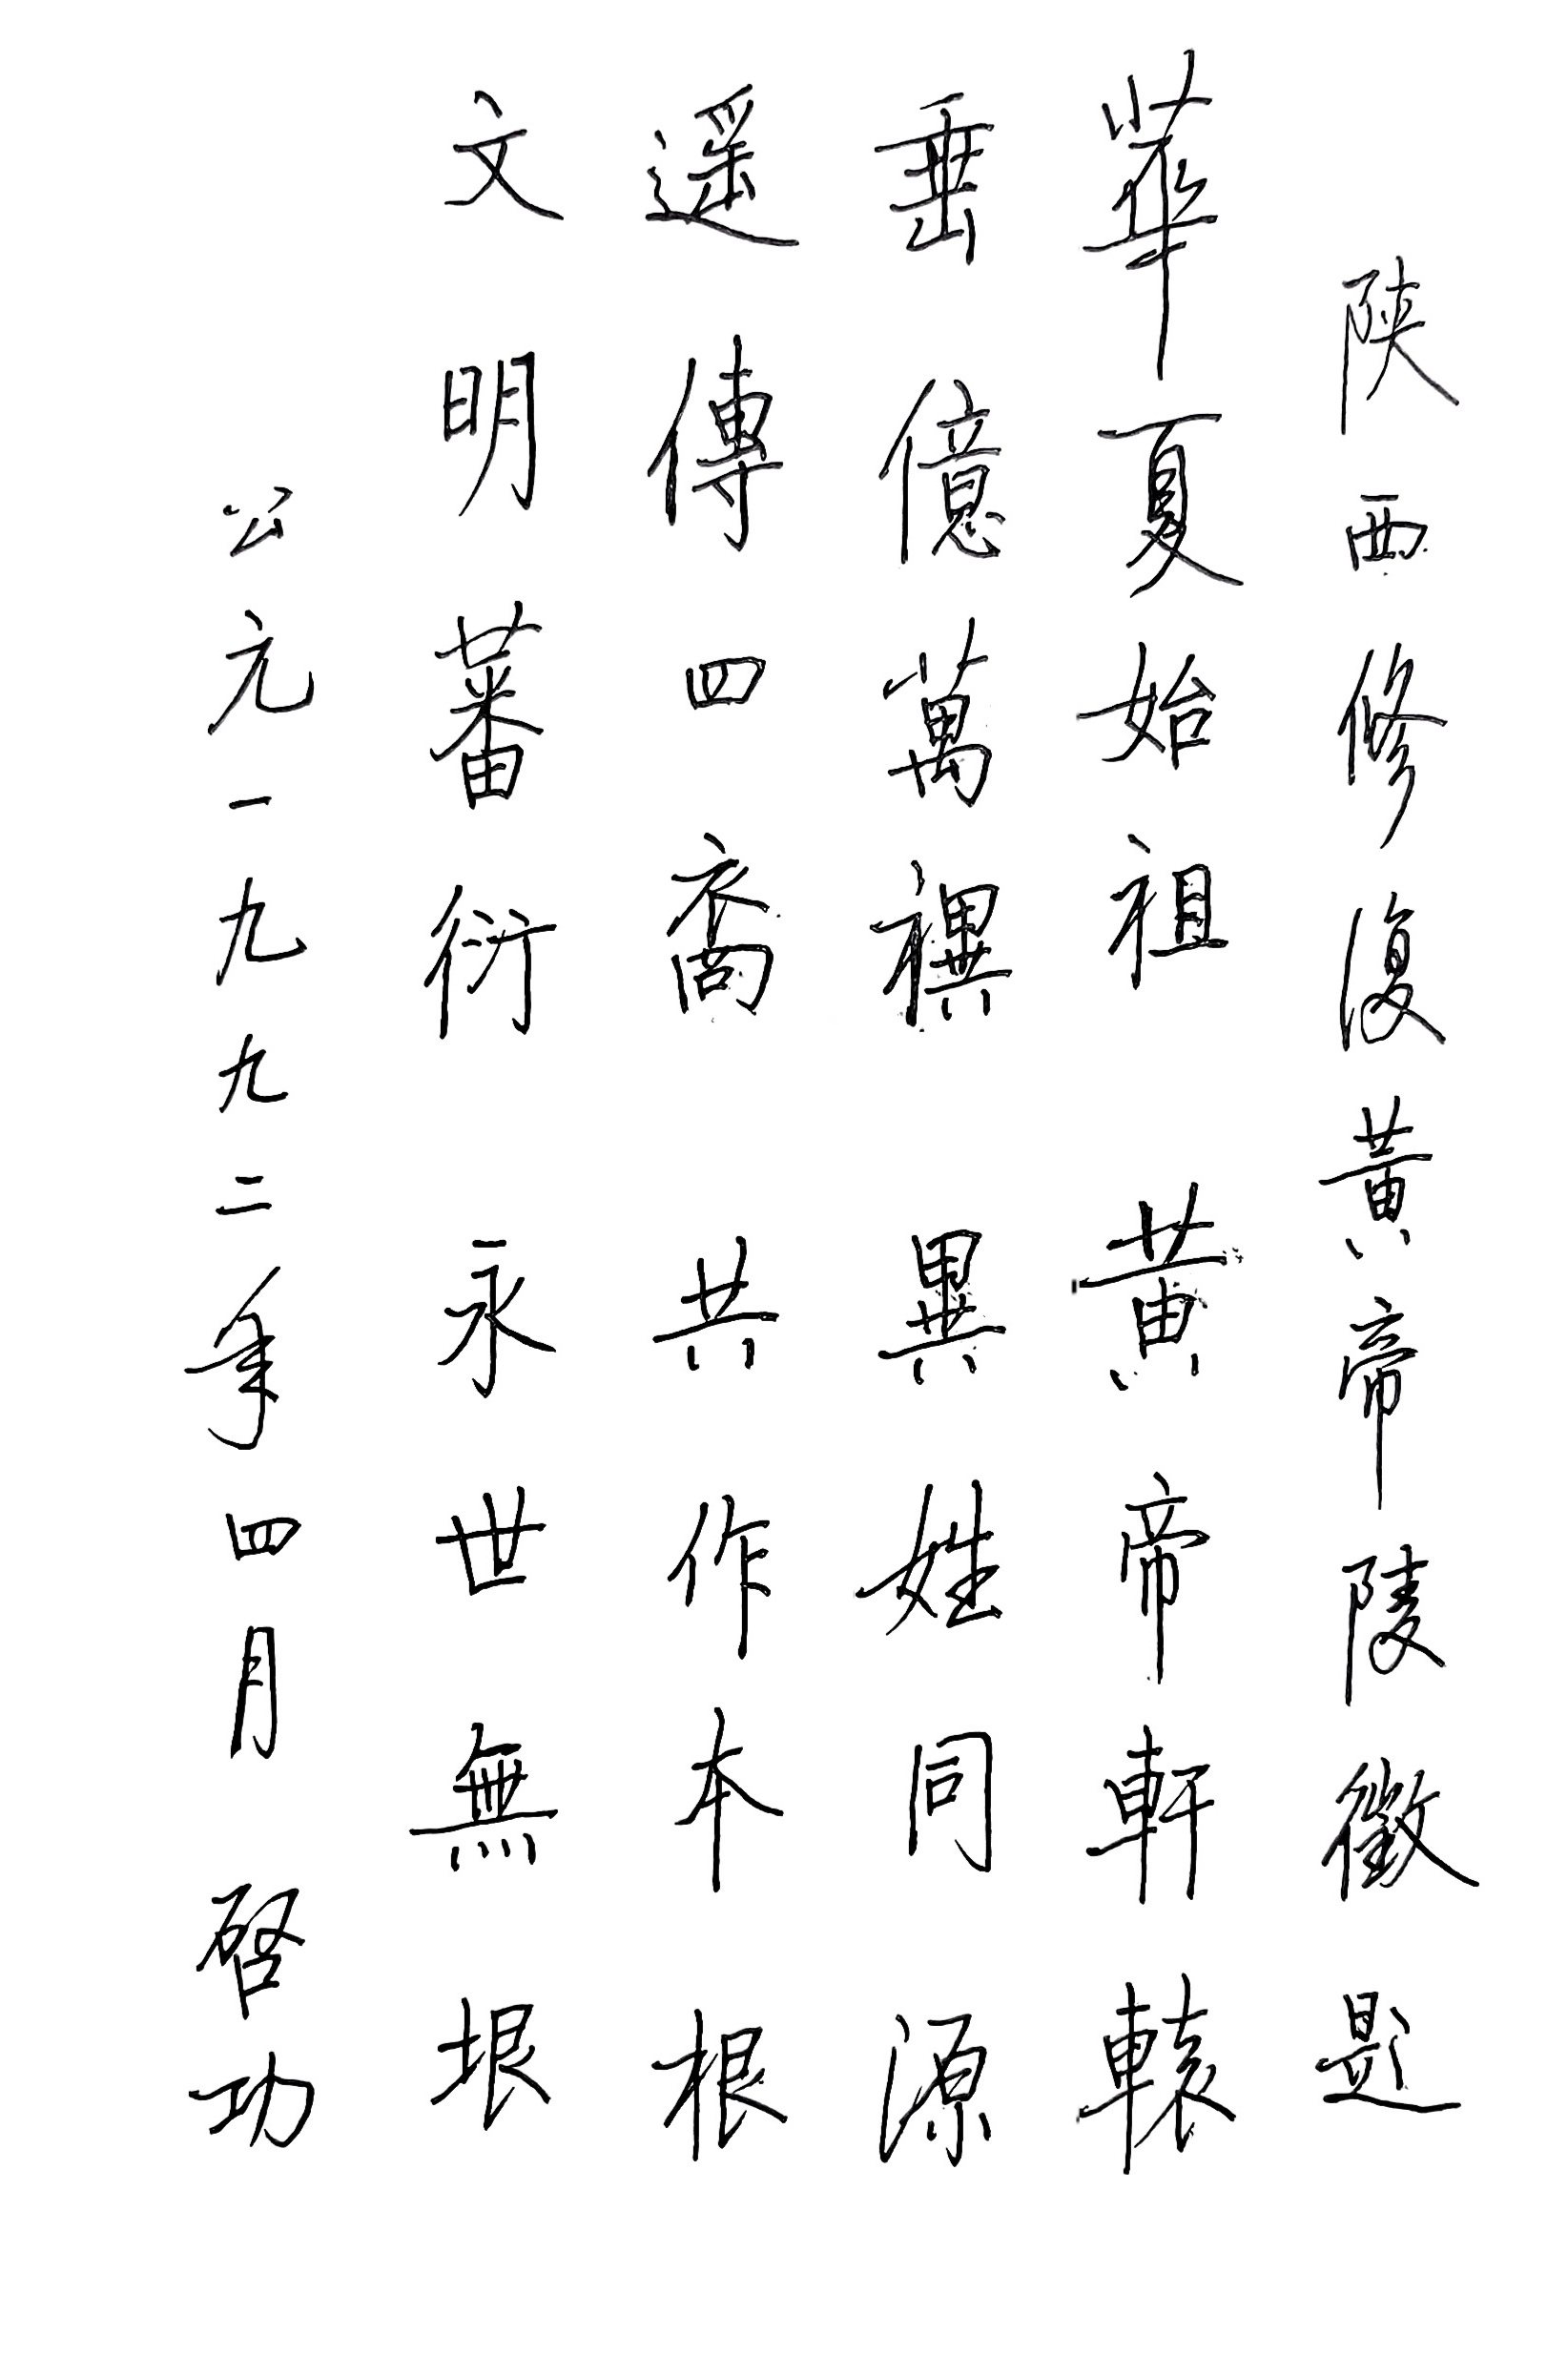 陝西修復黃帝陵徵題
華夏始祖黃帝軒轅
垂億萬禩異姓同源
遥傳四裔共作本根
文明蕃衍永世無垠
公元一九九二年四月啓功